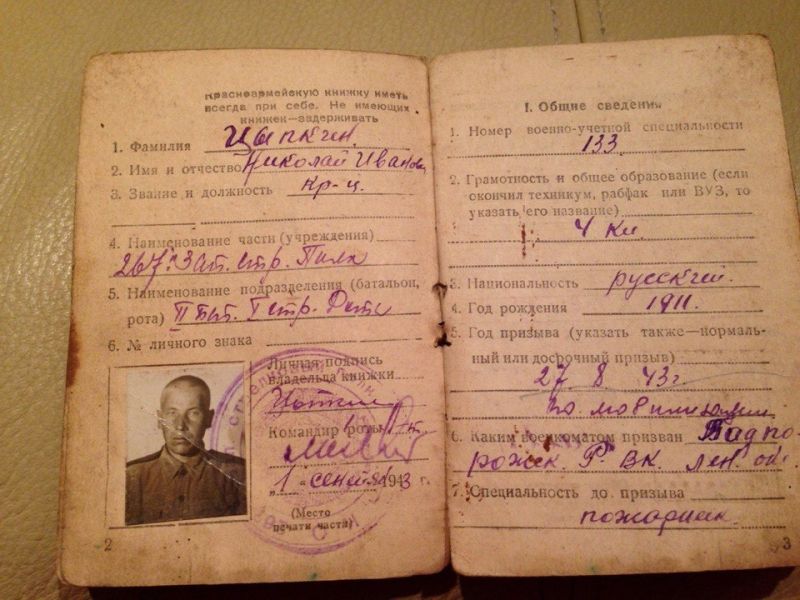 Красноармейскую книжку иметь
всегда при себе. Не имеющих
книжек—задерживать
1. Фамилия Цыпкин.
2. Имя и отчество Николай Иванов.
3. Звание и должность кр-ц.
4. Наименование части (учреждения)
267й Зап. стр. Полк
5. Наименование подразделения (батальон,
рота) II бат. I стр. Рота
6. № личного знака
Личная подпись
владельца книжки
Командир роты
„1“ сентяб 1943 г.
(Место
печати части)
2
I. Общие сведения
1. Номер военно-учетной специальности
133
2. Грамотность и общее образование (если
окончил техникум, рабфак или ВУЗ, то
указать его название)
4 кл.
3. Национальность русский.
4. Год рождения 1911.
5. Год призыва (указать также—нормаль-
ный или досрочный призыв)
27. 8. 43 г
по мобилизации
6. Каким военкоматом призван Падпо-
рожск. Р. ВК. Лен. об.
7. Специальность до призыва
пожарник.
3